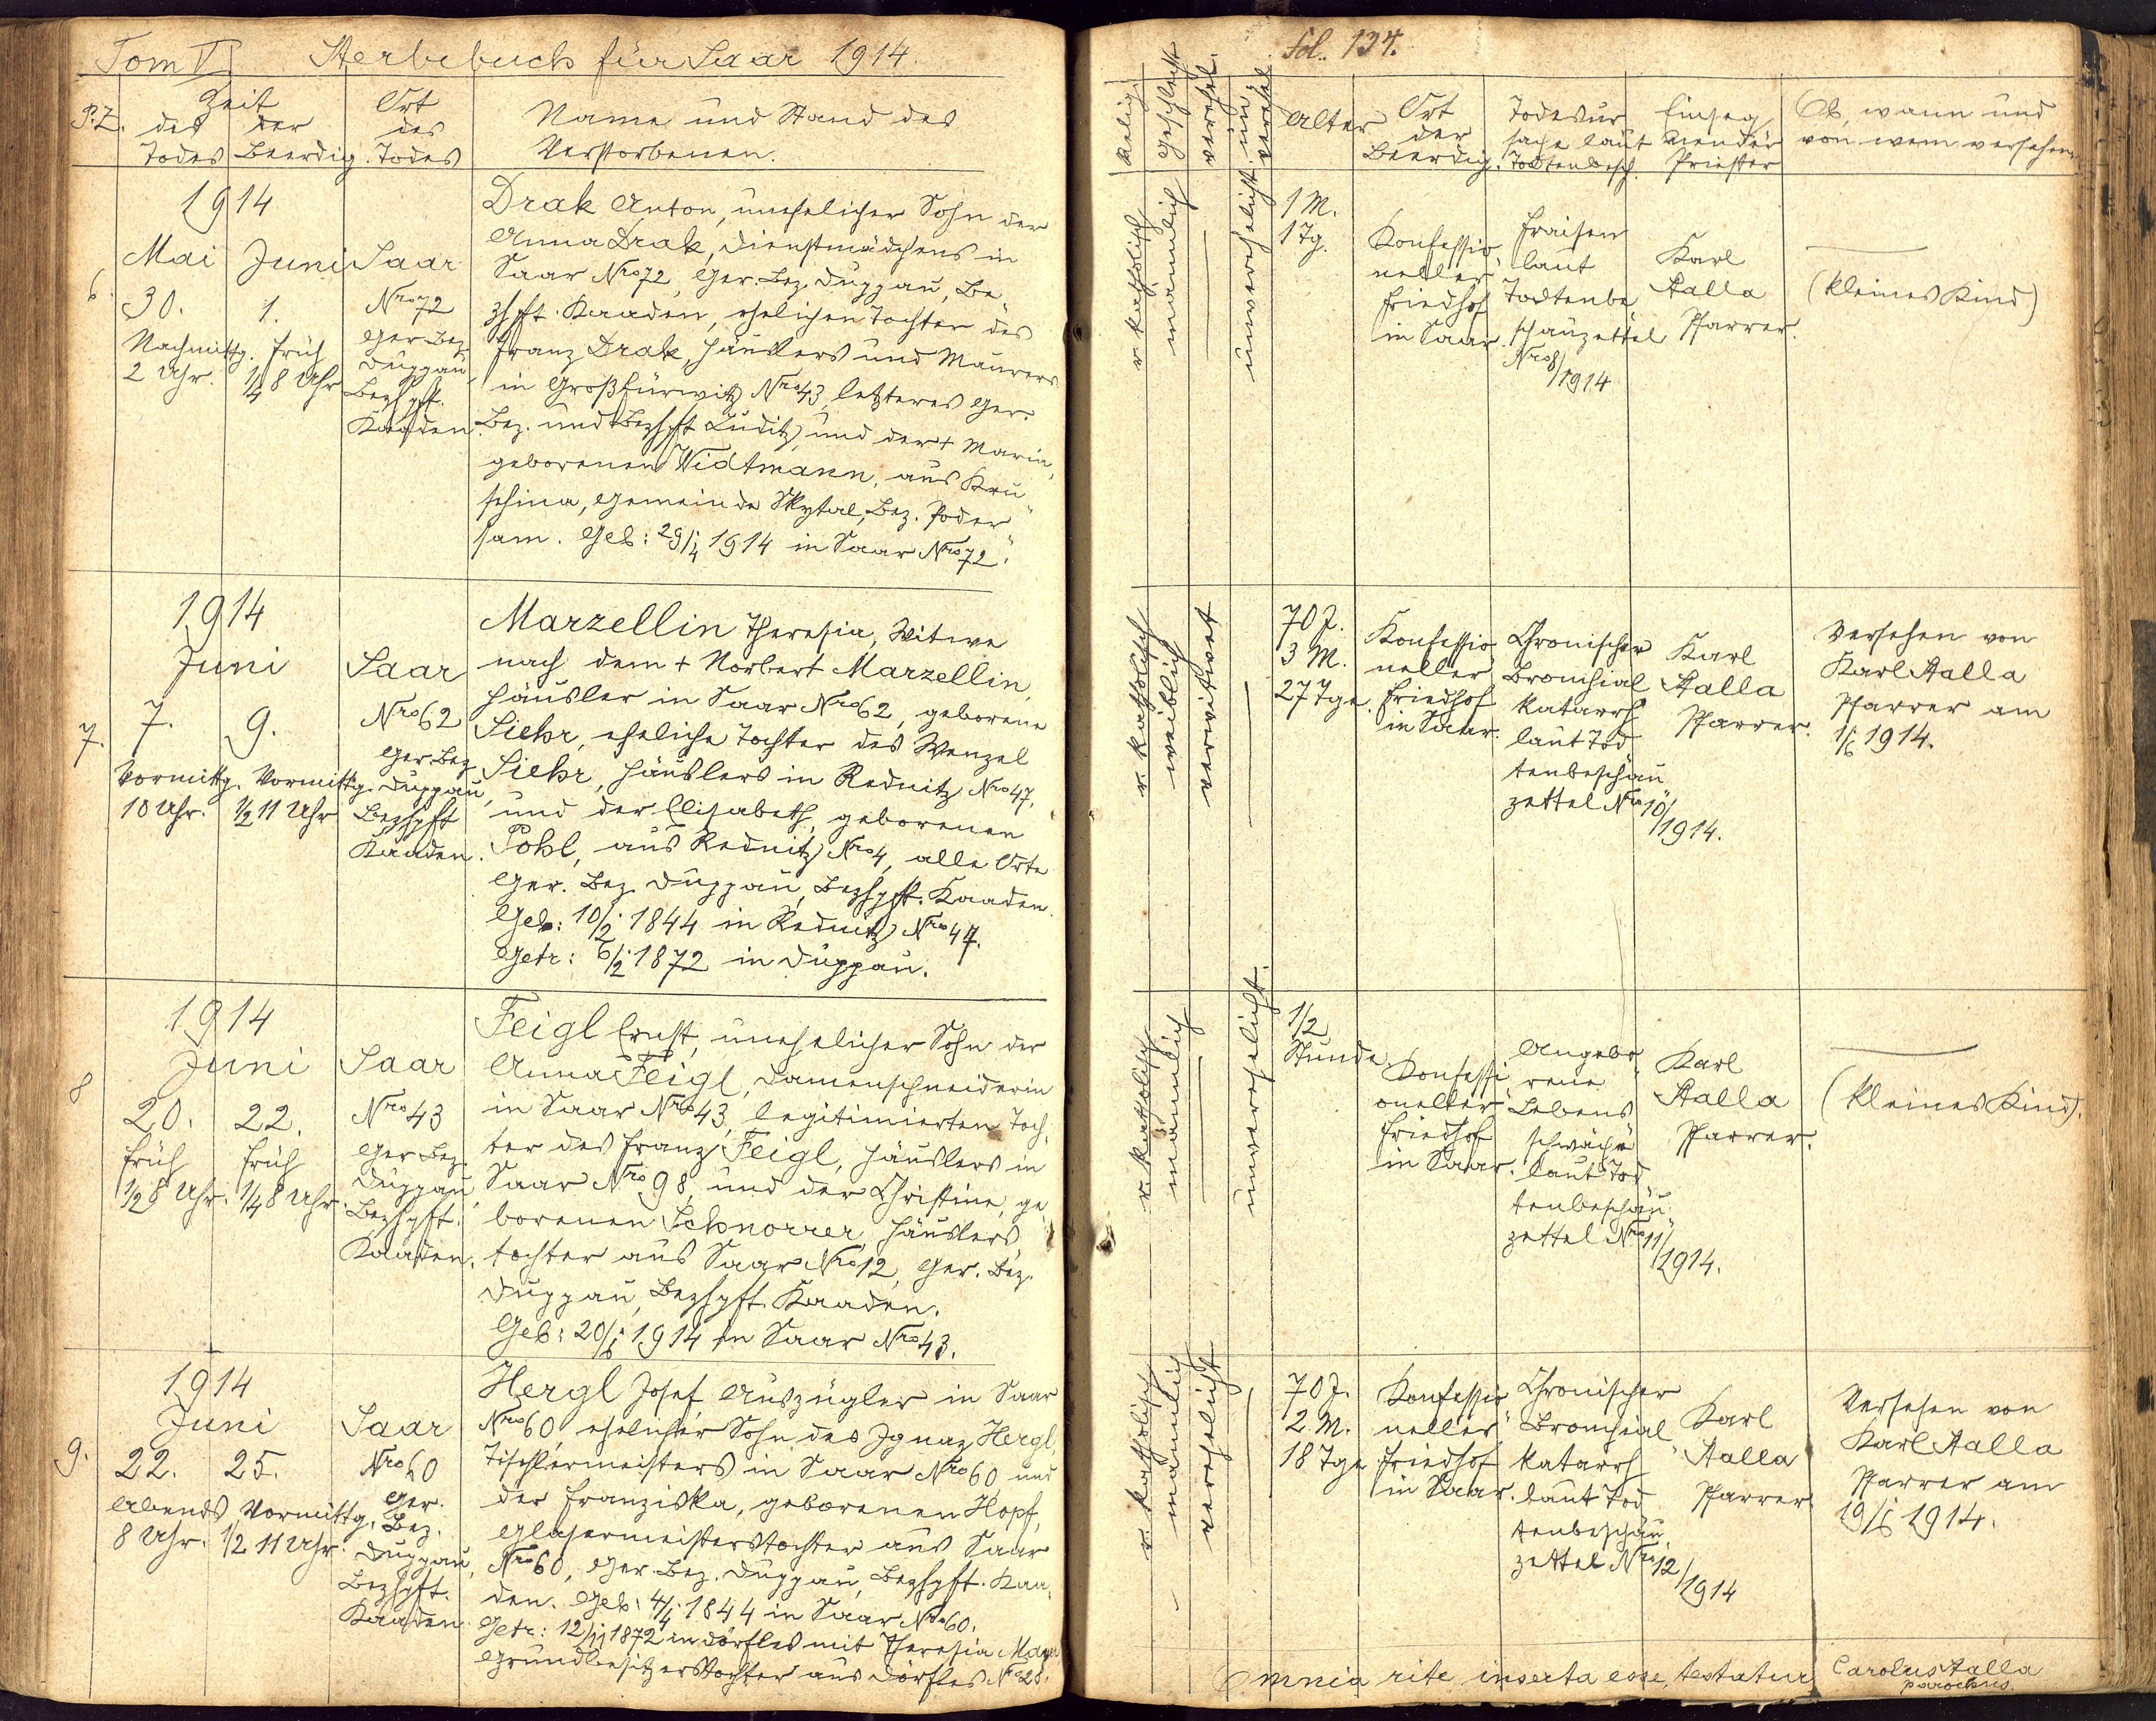 Tom V. Sterbebuch für Saar 1914.
P.Z.
Zeit
des Todes
der Beerdig.
Ort des Todes
Name und Stand des
Verstorbenen.
6.
1914
Mai Juni
30. 1.
Nachmittg. früh
2 Uhr. 1/4 8 Uhr
Saar
Nro 72
Ger. Bez.
Duppau,
Bezhptt.
Kaaden.
Drak Anton, unehelicher Sohn der
Anna Drak, Dienstmädchens in
Saar Nro 72, Ger. Bez. Duppau, Be-
zhptt. Kaaden, ehelichen Tochter des
Franz Drak, Häuslers und Maurers
in Großfürwitz Nro 43, letzteres Ger.
Bez. und Bezhptt Luditz, und der + Maria,
geborenen Widtmann, aus Kru-
schina, Gemeinde Skytal, Bez. Poder-
sam. Geb: 29/4 1914 in Saar Nro 72.
7.
1914
Juni
7. 9.
Vormittg. Vormittg.
10 Uhr. 1/2 11 Uhr
Saar
Nro 62
Ger. Bez.
Duppau,
Bezhptt
Kaaden.
Marzellin Theresia, Witwe
nach dem + Norbert Marzellin,
Häusler in Saar Nro 62, geborene
Siehr, eheliche Tochter des Wenzel
Siehr, Häuslers in Rednitz Nro 47,
und der Elisabeth, geborenen
Pohl, aus Rednitz Nro 4, alle Orte
Ger. Bez. Duppau, Bezhptt. Kaaden.
Geb: 10/2 1844 in Rednitz Nro 47.
Getr: 6/2 1872 in Duppau.
8
1914
Juni
20. 22.
früh früh
1/2 8 Uhr. 1/4 8 Uhr.
Saar
Nro 43
Ger. Bez.
Duppau,
Bezhptt.
Kaaden.
Feigl Ernst, unehelicher Sohn der
Anna Feigl, Damenschneiderin
in Saar Nro 43, legitimierten Toch-
ter des Franz Feigl, Häuslers in
Saar Nro 98, und der Christine, ge-
borenen Schnorrer, Häuslers-
tochter aus Saar Nro 12, Ger. Bez.
Duppau, Bezhptt. Kaaden.
Geb: 20/6 1914 in Saar Nro 43.
9.
1914
Juni
22. 25.
Abends Vormittg.
8 Uhr. 1/2 11 Uhr.
Saar
Nro 60
Ger.
Bez.
Duppau,
Bezhptt.
Kaaden.
Hergl Josef, Auszügler in Saar
Nro 60, ehelicher Sohn des Ignaz Hergl,
Tischlermeisters in Saar Nro 60 und
der Franziska, geborenen Hopf,
Glasermeisterstochter aus Saar
Nro 60, Ger. Bez. Duppau, Bezhptt. Kaa-
den. Geb: 4/4 1844 in Saar Nro 60.
Getr: 12/11 1872 in Dörfles mit Theresia
Grundbesitzerstochter aus Dörfles Nro 28.
Fol. 134.
Relig.
Geschlecht
verehel.
un-
verehel
Alter
Ort
der
Beerdig.
Todesur-
sache laut
Todtenbesch.
Einseg-
nender
Priester
Ob, wann und
von wem versehen
r. katholisch
männlich
unverehelicht
1 M.
1 Tg.
Konfessio-
neller
Friedhof
in Saar.
Fraisen
laut
Todtenbe-
schauzettel
Nro 8/1914
Karl
Stalla
Pfarrer.
(kleines Kind)
r. katholisch
weiblich
verwitwet
70 J.
3 M.
27 Tge.
Konfessio-
neller
Friedhof
in Saar.
Chronischer
Bronchial-
katarrh
laut Tod-
tenbeschau-
zettel Nro 10/
1914.
Karl
Stalla
Pfarrer.
Versehen von
Karl Stalla
Pfarrer am
1/6 1914.
r. katholisch
männlich
unverehelicht.
1/2
Stunde
Konfessi-
oneller
Friedhof
in Saar.
Angebo-
rene
Lebens-
schwäche
laut Tod-
tenbeschau-
zettel Nro 11/
1914.
Karl
Stalla
Pfarrer.
(kleines Kind).
r. katholisch
männlich
verehelicht
70 J.
2 M.
18 Tge
Konfessio-
neller
Friedhof
in Saar.
Chronischer
Bronchial-
katarrh
laut Tod-
tenbeschau-
zettel Nro 12/
1914
Karl
Stalla
Pfarrer
Versehen von
Karl Stalla
Pfarrer am
19/6 1914.
Omnia rite inserta esse, testatur Carolus Stalla
parochus.